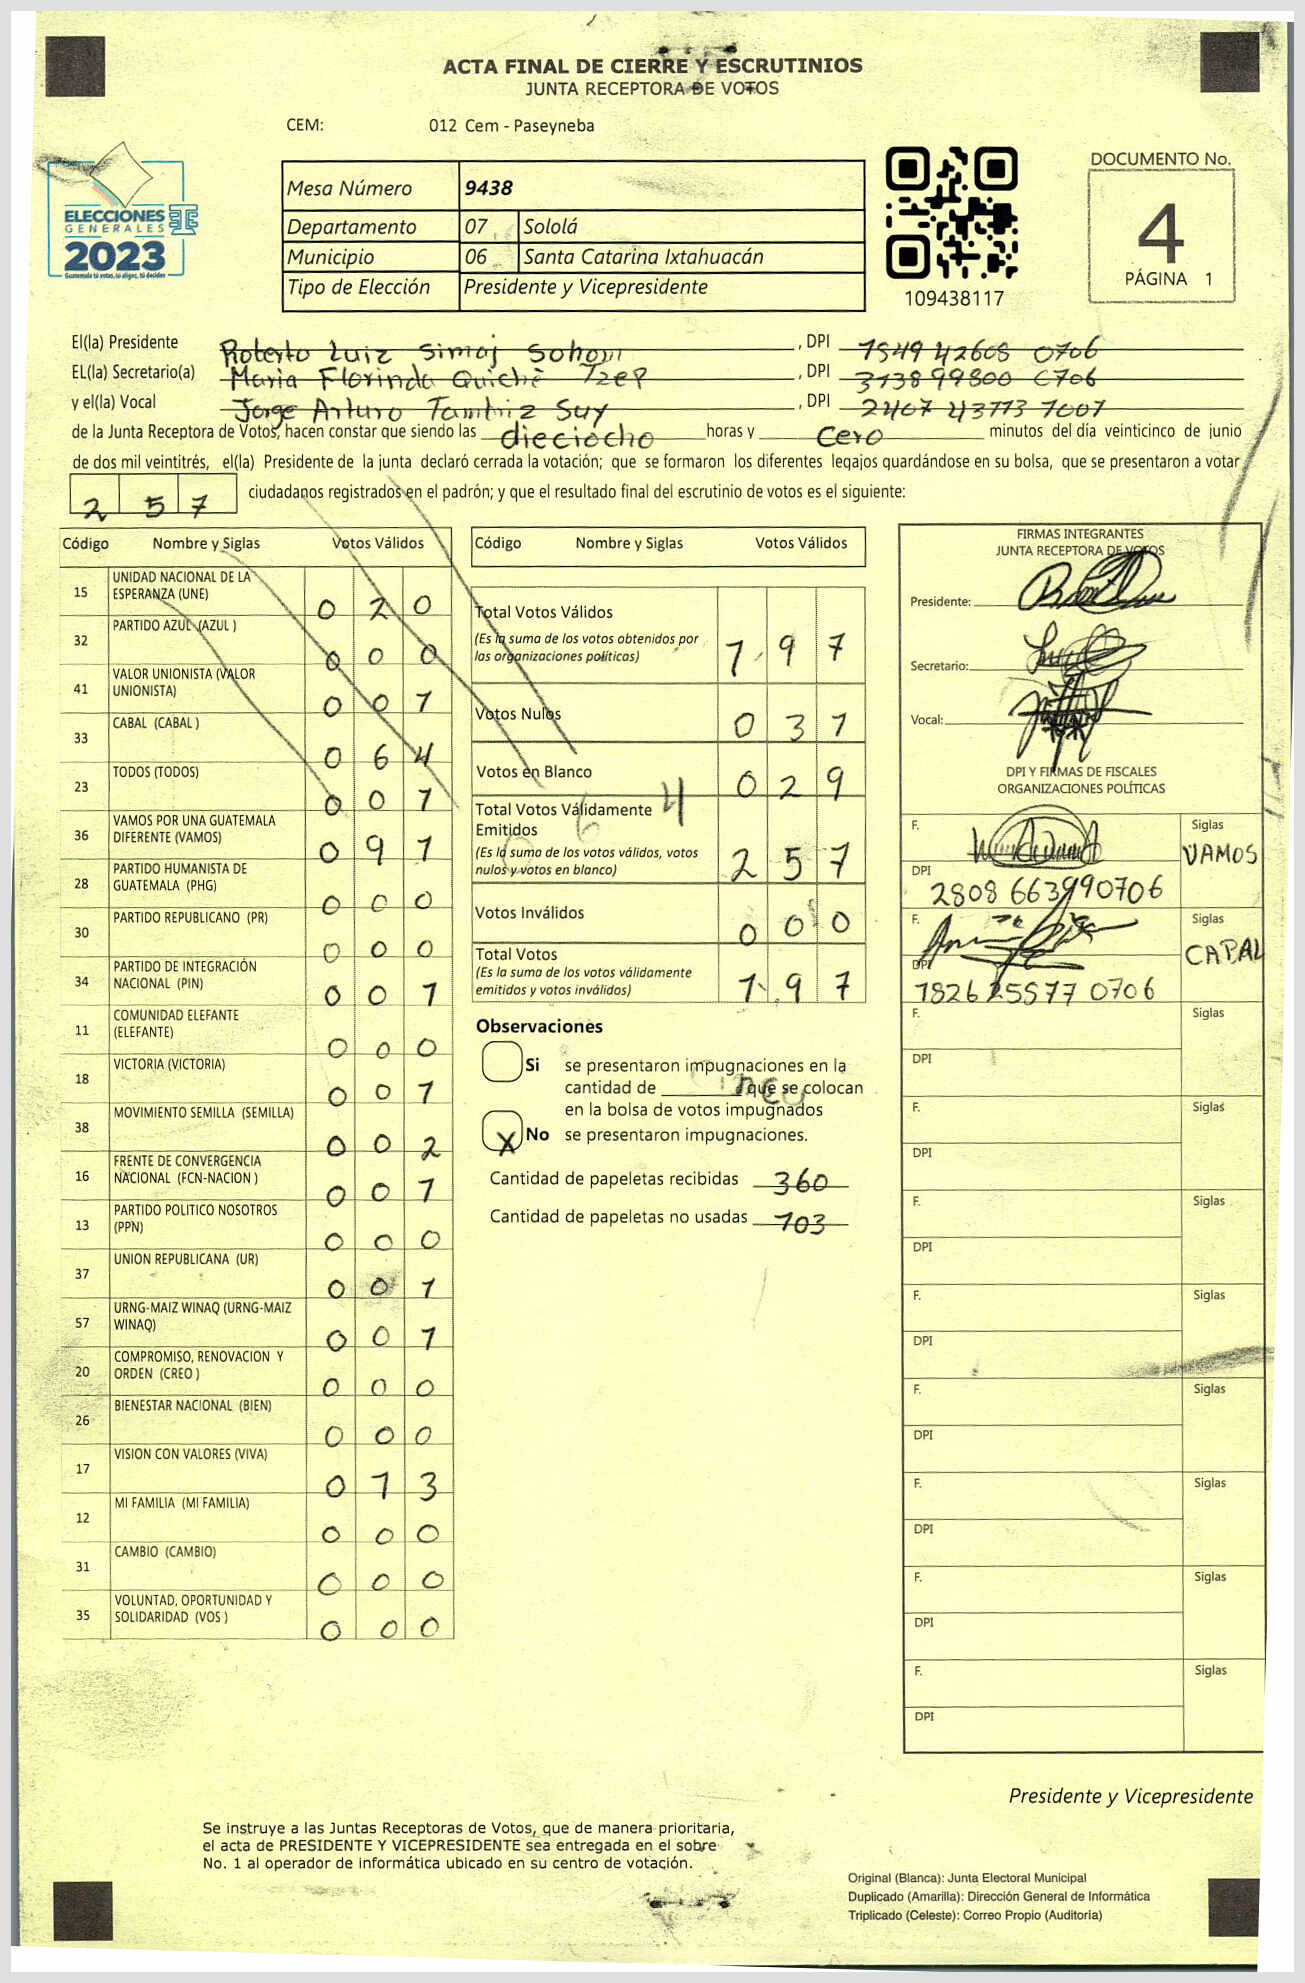 ACTA FINAL DE CIERRE Y ESCRUTINIOS
JUNTA RECEPTORA DE VOTOS
CEM: 012 Cem - Paseyneba
ELECCIONES
GENERALES
2023
Guatemala tú votas, tú eliges, tú decides
Mesa Número 9438
Departamento 07 Sololá
Municipio 06 Santa Catarina Ixtahuacán
Tipo de Elección Presidente y Vicepresidente
109438117
DOCUMENTO No.
4
PÁGINA 1
El(la) Presidente Roberto Luiz Simaj Sohom, DPI 1549 42608 0706
EL(la) Secretario(a) Maria Florinda Quiché Tzep, DPI 3138 99800 0706
y el(la) Vocal Jorge Arturo Tambriz Suy, DPI 2407 43773 7007
de la Junta Receptora de Votos, hacen constar que siendo las dieciocho horas y Cero minutos del día veinticinco de junio
de dos mil veintitrés, el(la) Presidente de la junta declaró cerrada la votación; que se formaron los diferentes legajos guardándose en su bolsa, que se presentaron a votar
257 ciudadanos registrados en el padrón; y que el resultado final del escrutinio de votos es el siguiente:
Código Nombre y Siglas Votos Válidos
15 UNIDAD NACIONAL DE LA ESPERANZA (UNE) 0 2 0
32 PARTIDO AZUL (AZUL ) 0 0 0
41 VALOR UNIONISTA (VALOR UNIONISTA) 0 0 1
33 CABAL (CABAL ) 0 6 4
23 TODOS (TODOS) 0 0 1
36 VAMOS POR UNA GUATEMALA DIFERENTE (VAMOS) 0 9 1
28 PARTIDO HUMANISTA DE GUATEMALA (PHG) 0 0 0
30 PARTIDO REPUBLICANO (PR) 0 0 0
34 PARTIDO DE INTEGRACIÓN NACIONAL (PIN) 0 0 1
11 COMUNIDAD ELEFANTE (ELEFANTE) 0 0 0
18 VICTORIA (VICTORIA) 0 0 1
38 MOVIMIENTO SEMILLA (SEMILLA) 0 0 2
16 FRENTE DE CONVERGENCIA NACIONAL (FCN-NACION ) 0 0 1
13 PARTIDO POLITICO NOSOTROS (PPN) 0 0 0
37 UNION REPUBLICANA (UR) 0 0 1
57 URNG-MAIZ WINAQ (URNG-MAIZ WINAQ) 0 0 1
20 COMPROMISO, RENOVACION Y ORDEN (CREO ) 0 0 0
26 BIENESTAR NACIONAL (BIEN) 0 0 0
17 VISION CON VALORES (VIVA) 0 1 3
12 MI FAMILIA (MI FAMILIA) 0 0 0
31 CAMBIO (CAMBIO) 0 0 0
35 VOLUNTAD, OPORTUNIDAD Y SOLIDARIDAD (VOS ) 0 0 0
Código Nombre y Siglas Votos Válidos
Total Votos Válidos 1 9 7
(Es la suma de los votos obtenidos por
las organizaciones políticas)
Votos Nulos 0 3 1
Votos en Blanco 0 2 9
Total Votos Válidamente
Emitidos
(Es la suma de los votos válidos, votos
nulos y votos en blanco) 2 5 7
Votos Inválidos 0 0 0
Total Votos
(Es la suma de los votos válidamente
emitidos y votos inválidos) 1 9 7
Observaciones
Si se presentaron impugnaciones en la
cantidad de que se colocan
en la bolsa de votos impugnados
X No se presentaron impugnaciones.
Cantidad de papeletas recibidas 360
Cantidad de papeletas no usadas 103
FIRMAS INTEGRANTES
JUNTA RECEPTORA DE VOTOS
Presidente:
Secretario:
Vocal:
DPI Y FIRMAS DE FISCALES
ORGANIZACIONES POLÍTICAS
F. Siglas
VAMOS
DPI 2808 663990706
F. Siglas
CAPAL
DPI 1826 25577 0706
F. Siglas
DPI
F. Siglas
DPI
F. Siglas
DPI
F. Siglas
DPI
F. Siglas
DPI
F. Siglas
DPI
F. Siglas
DPI
F. Siglas
DPI
Presidente y Vicepresidente
Se instruye a las Juntas Receptoras de Votos, que de manera prioritaria,
el acta de PRESIDENTE Y VICEPRESIDENTE sea entregada en el sobre
No. 1 al operador de informática ubicado en su centro de votación.
Original (Blanca): Junta Electoral Municipal
Duplicado (Amarilla): Dirección General de Informática
Triplicado (Celeste): Correo Propio (Auditoría)